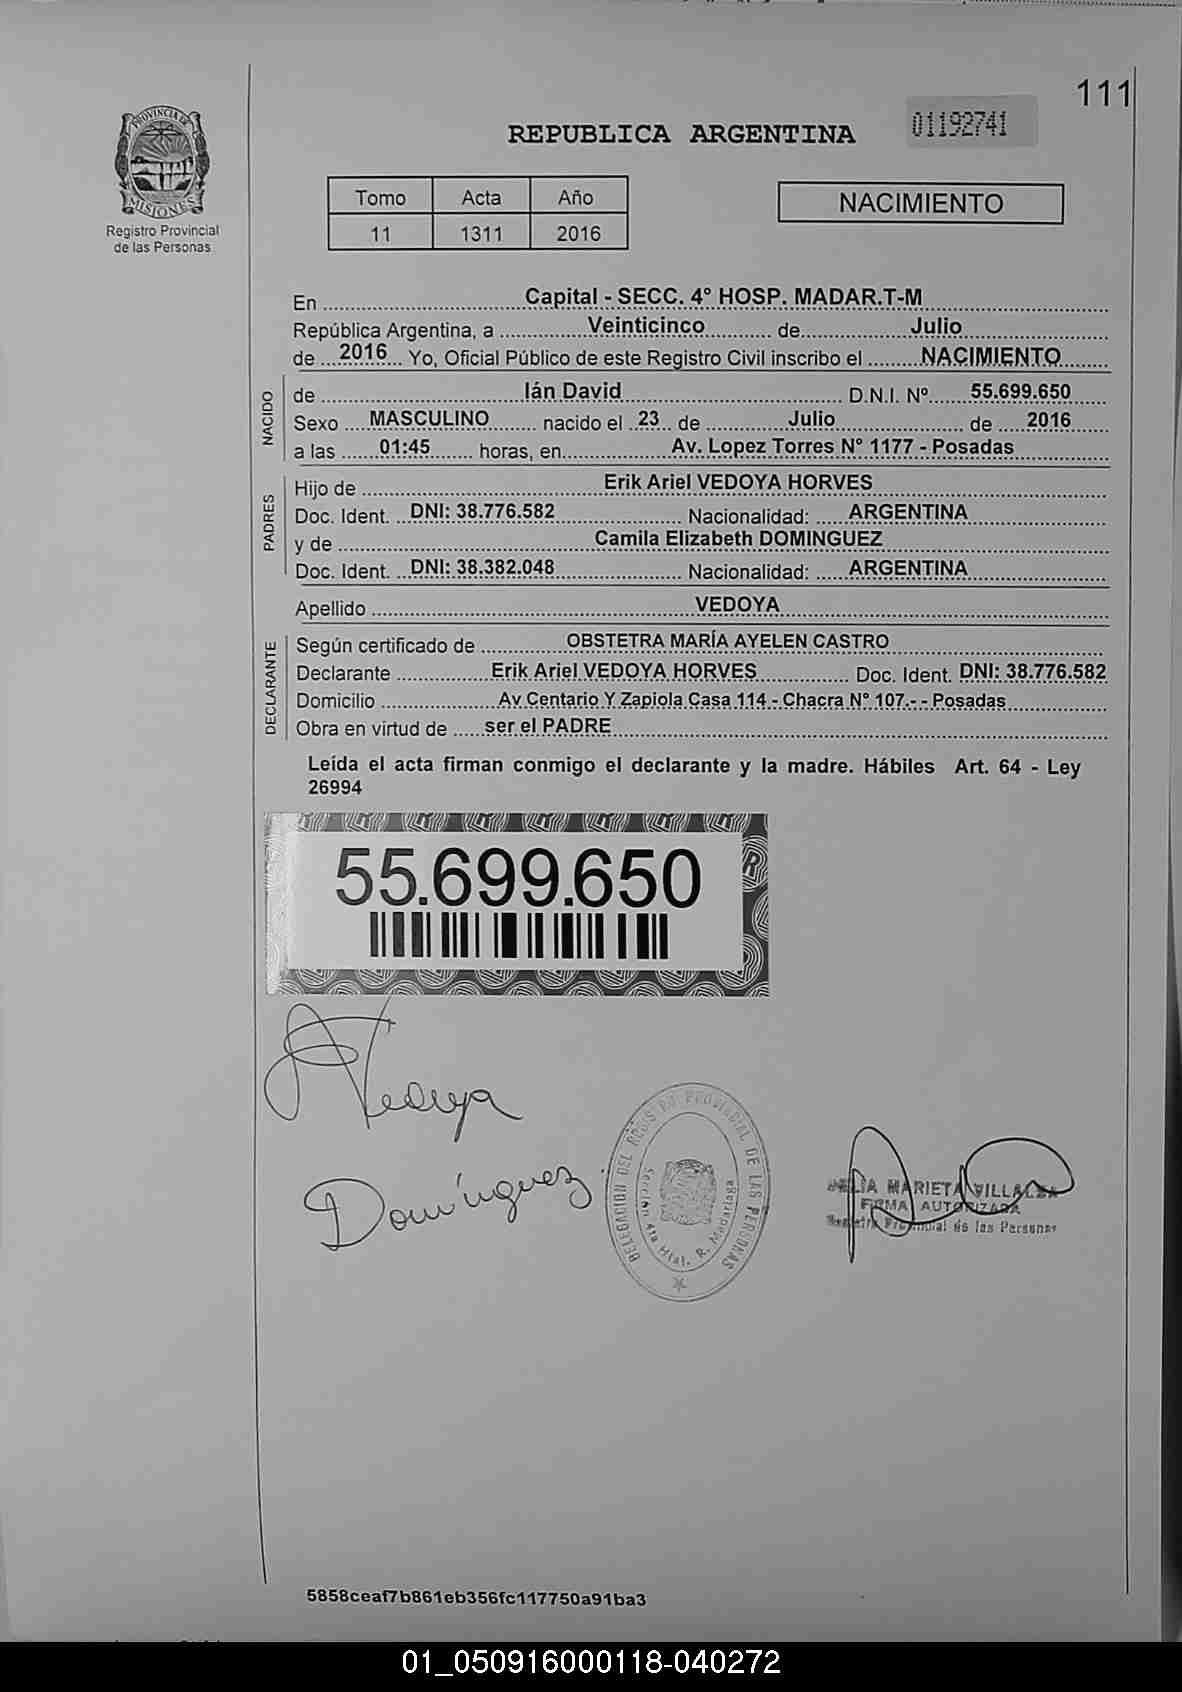 111
PROVINCIA DE
MISIONES
Registro Provincial
de las Personas
REPUBLICA ARGENTINA
01192741
Tomo Acta Año
11 1311 2016
NACIMIENTO
En Capital - SECC. 4° HOSP. MADAR.T-M
República Argentina, a Veinticinco de Julio
de 2016 Yo, Oficial Público de este Registro Civil inscribo el NACIMIENTO
NACIDO
de Ián David D.N.I. Nº 55.699.650
Sexo MASCULINO nacido el 23 de Julio de 2016
a las 01:45 horas, en Av. Lopez Torres N° 1177 - Posadas
PADRES
Hijo de Erik Ariel VEDOYA HORVES
Doc. Ident. DNI: 38.776.582 Nacionalidad: ARGENTINA
y de Camila Elizabeth DOMINGUEZ
Doc. Ident. DNI: 38.382.048 Nacionalidad: ARGENTINA
Apellido VEDOYA
DECLARANTE
Según certificado de OBSTETRA MARÍA AYELEN CASTRO
Declarante Erik Ariel VEDOYA HORVES Doc. Ident. DNI: 38.776.582
Domicilio Av Centario Y Zapiola Casa 114 - Chacra N° 107.- - Posadas
Obra en virtud de ser el PADRE
Leída el acta firman conmigo el declarante y la madre. Hábiles Art. 64 - Ley
26994
55.699.650
Vedoya
Domínguez
DELEGACION DEL REGISTRO PROVINCIAL DE LAS PERSONAS
Sección 4ta Htal. R. Madariaga
MARIETA VILLALBA
FIRMA AUTORIZADA
Registro Provincial de las Personas
5858ceaf7b861eb356fc117750a91ba3
01_050916000118-040272